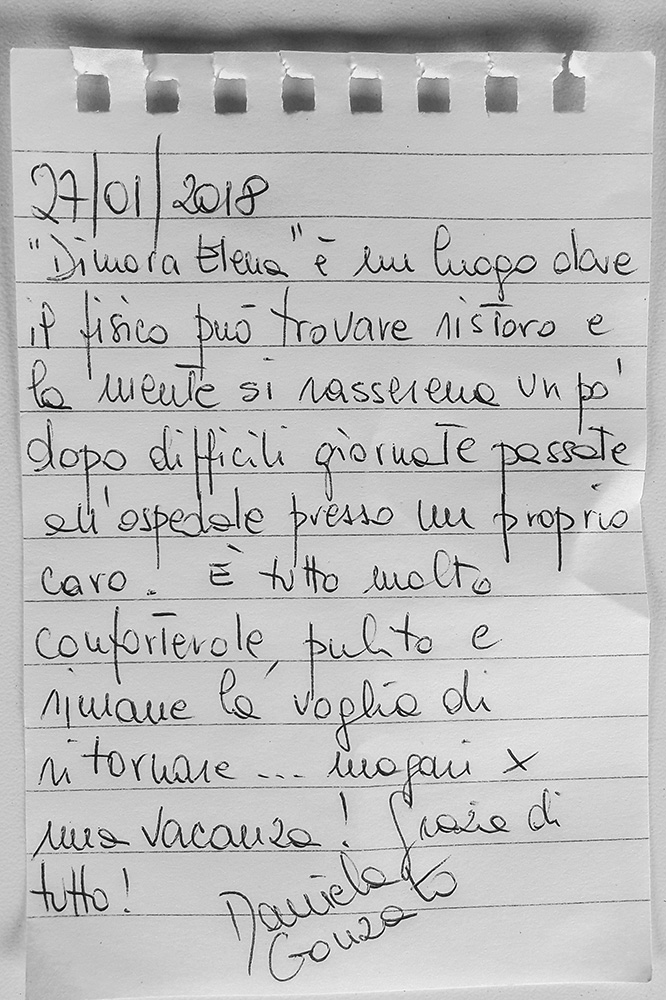 27/01/2018
"Dimora Elena" è un luogo dove
il fisico può trovare ristoro e
la mente si rasserena un po'
dopo difficili giornate passate
all'ospedale presso un proprio
caro. È tutto molto
confortevole, pulito e
rimane la voglia di
ritornare... magari x
una vacanza! Grazie di
tutto!
Daniela
Gonzato